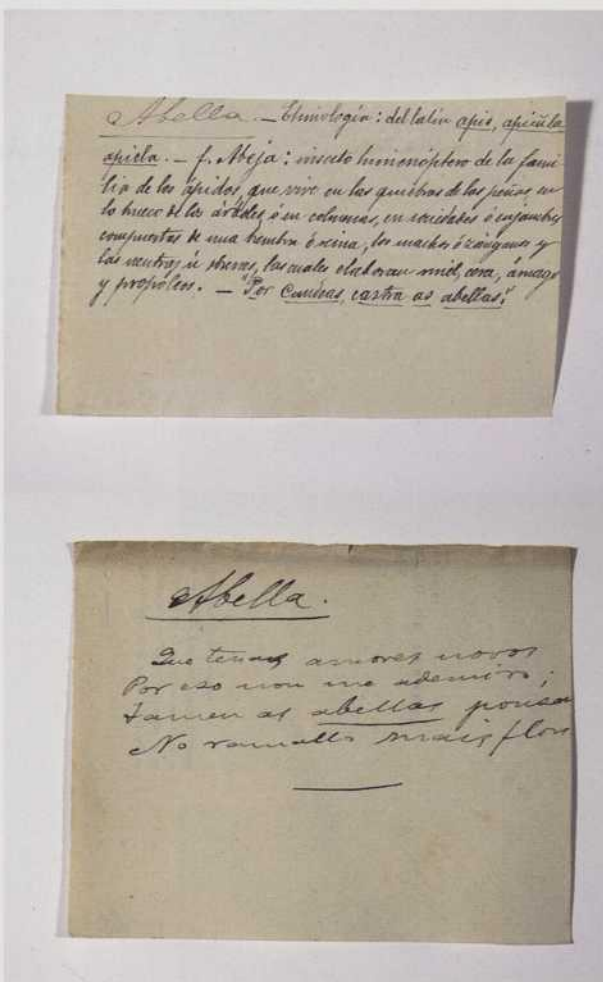 Abella. — Etimología: del latín apis, apicŭla
apicla. — f. Abeja: insecto himenóptero de la fami-
lia de los ápidos, que vive en las quiebras de las peñas, en
lo hueco de los árboles, ó en colmenas, en sociedades ó enjambres
compuestos de una hembra ó reina, los machos ó zánganos y
las neutras ú obreras, las cuales elaboran miel, cera, ámago
y propóleos. — "Por castra as abellas".
Abella.
Que teñas amores novos
Por eso non me ademiro;
Tamen as abellas pousan
No ramallo mais